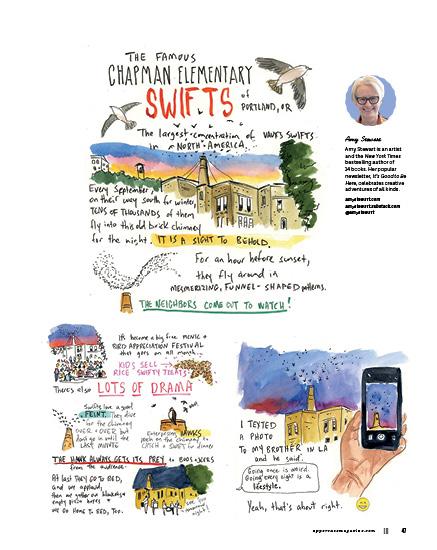 THE FAMOUS
CHAPMAN ELEMENTARY
SWIFTS of
PORTLAND, OR
The largest concentration of VAUX'S SWIFTS
in NORTH AMERICA...
Every September,
on their way south for winter,
TENS OF THOUSANDS of them
fly into this old brick chimney
for the night. IT IS A SIGHT TO BEHOLD.
For an hour before sunset,
they fly around in
MESMERIZING, FUNNEL-SHAPED patterns.
THE NEIGHBORS COME OUT TO WATCH!
It's become a big free PICNIC +
BIRD APPRECIATION FESTIVAL
that goes on all month...
KIDS SELL
RICE SWIFTY TREATS
There's also LOTS OF DRAMA
Swifts love a good
FEINT. They dive
for the chimney
OVER + OVER but
don't go in until the
LAST MINUTE
Enterprising HAWKS
perch on the chimney to
CATCH a SWIFT for dinner
THE HAWK ALWAYS GETS ITS PREY to BOOS + JEERS
from the audience.
At last THEY GO TO BED,
and we applaud,
then we gather our blankets +
empty pizza boxes +
WE GO HOME TO BED, TOO.
see you
tomorrow
night!
I TEXTED
A PHOTO
TO MY BROTHER IN LA
and he said:
Going once is weird.
Going every night is a
lifestyle.
Yeah, that's about right.
Amy Stewart
Amy Stewart is an artist
and the New York Times
bestselling author of
14 books. Her popular
newsletter, It's Good to Be
Here, celebrates creative
adventures of all kinds.
amystewart.com
amystewart.substack.com
@amystewart
uppercasemagazine.com
47